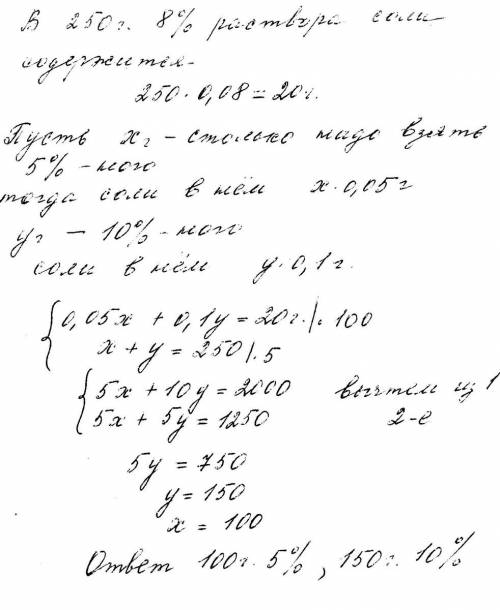 В 250 г. 8% раствора соли
содержится.
250 · 0,08 = 20 г.
Пусть x г – столько надо взять
5% – ного
тогда соли в нём x · 0,05 г
y г – 10% – ного
соли в нём y · 0,1 г.
{ 0,05x + 0,1y = 20 г. | · 100
x + y = 250 | · 5
{ 5x + 10y = 2000 вычтем из 1
5x + 5y = 1250 2-е
5y = 750
y = 150
x = 100
Ответ 100 г. 5%, 150 г. 10%